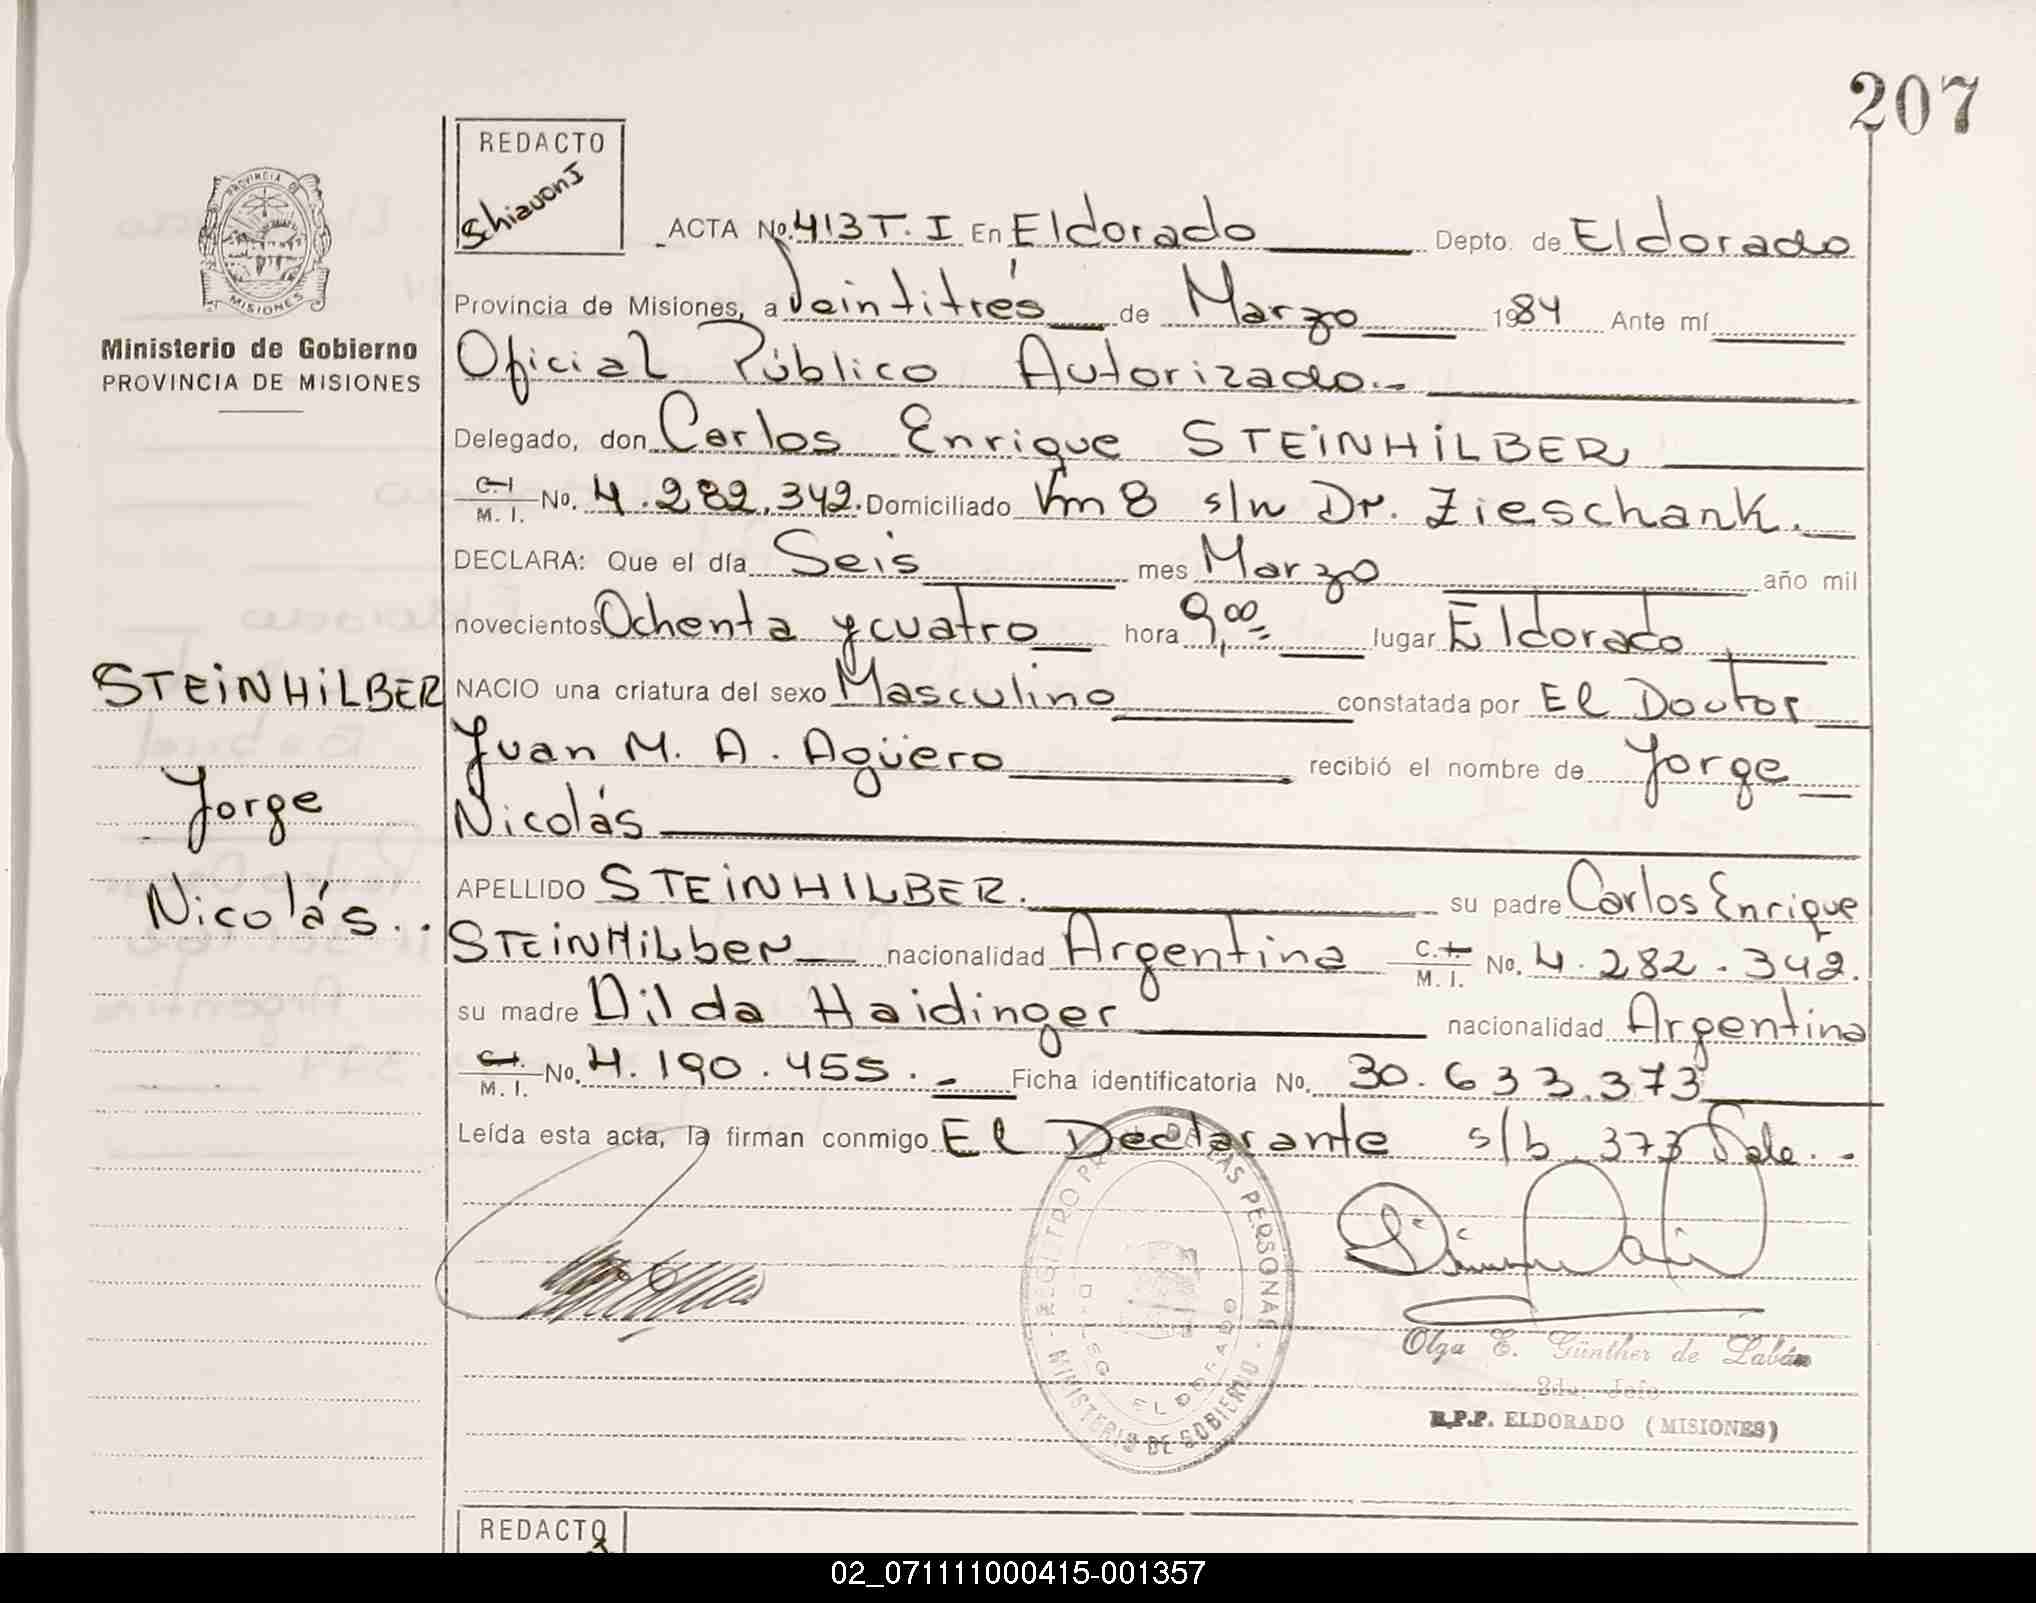 207
REDACTO
Schiavoni
ACTA No. 413 T. I En Eldorado Depto. de Eldorado
PROVINCIA DE
MISIONES
Ministerio de Gobierno
PROVINCIA DE MISIONES
Provincia de Misiones, a Veintitrés de Marzo 1984 Ante mí
Oficial Público Autorizado.-
Delegado, don Carlos Enrique STEINHILBER
C.I M. I. No. 4.282.342. Domiciliado Km 8 s/n Dr. Zieschank.
DECLARA: Que el día Seis mes Marzo año mil
novecientos Ochenta y cuatro hora 9,00 lugar Eldorado
STEINHILBER
Jorge
Nicolás..
NACIO una criatura del sexo Masculino constatada por El Doctor
Juan M. A. Agüero recibió el nombre de Jorge
Nicolás
APELLIDO STEINHILBER. su padre Carlos Enrique
STEINHILBER nacionalidad Argentina C.I. M. I. No. 4.282.342.
su madre Nilda Haidinger nacionalidad Argentina
C.I. M. I. No. 4.190.455.- Ficha identificatoria No. 30.633.373
Leída esta acta, la firman conmigo El Declarante s/b 373 Vale.-
REGISTRO PROV. DE LAS PERSONAS
DELEG. ELDORADO
MINISTERIO DE GOBIERNO
Olga E. Günther de Labán
2da. Jefe
R.P.P. ELDORADO (MISIONES)
REDACTO
02_071111000415-001357